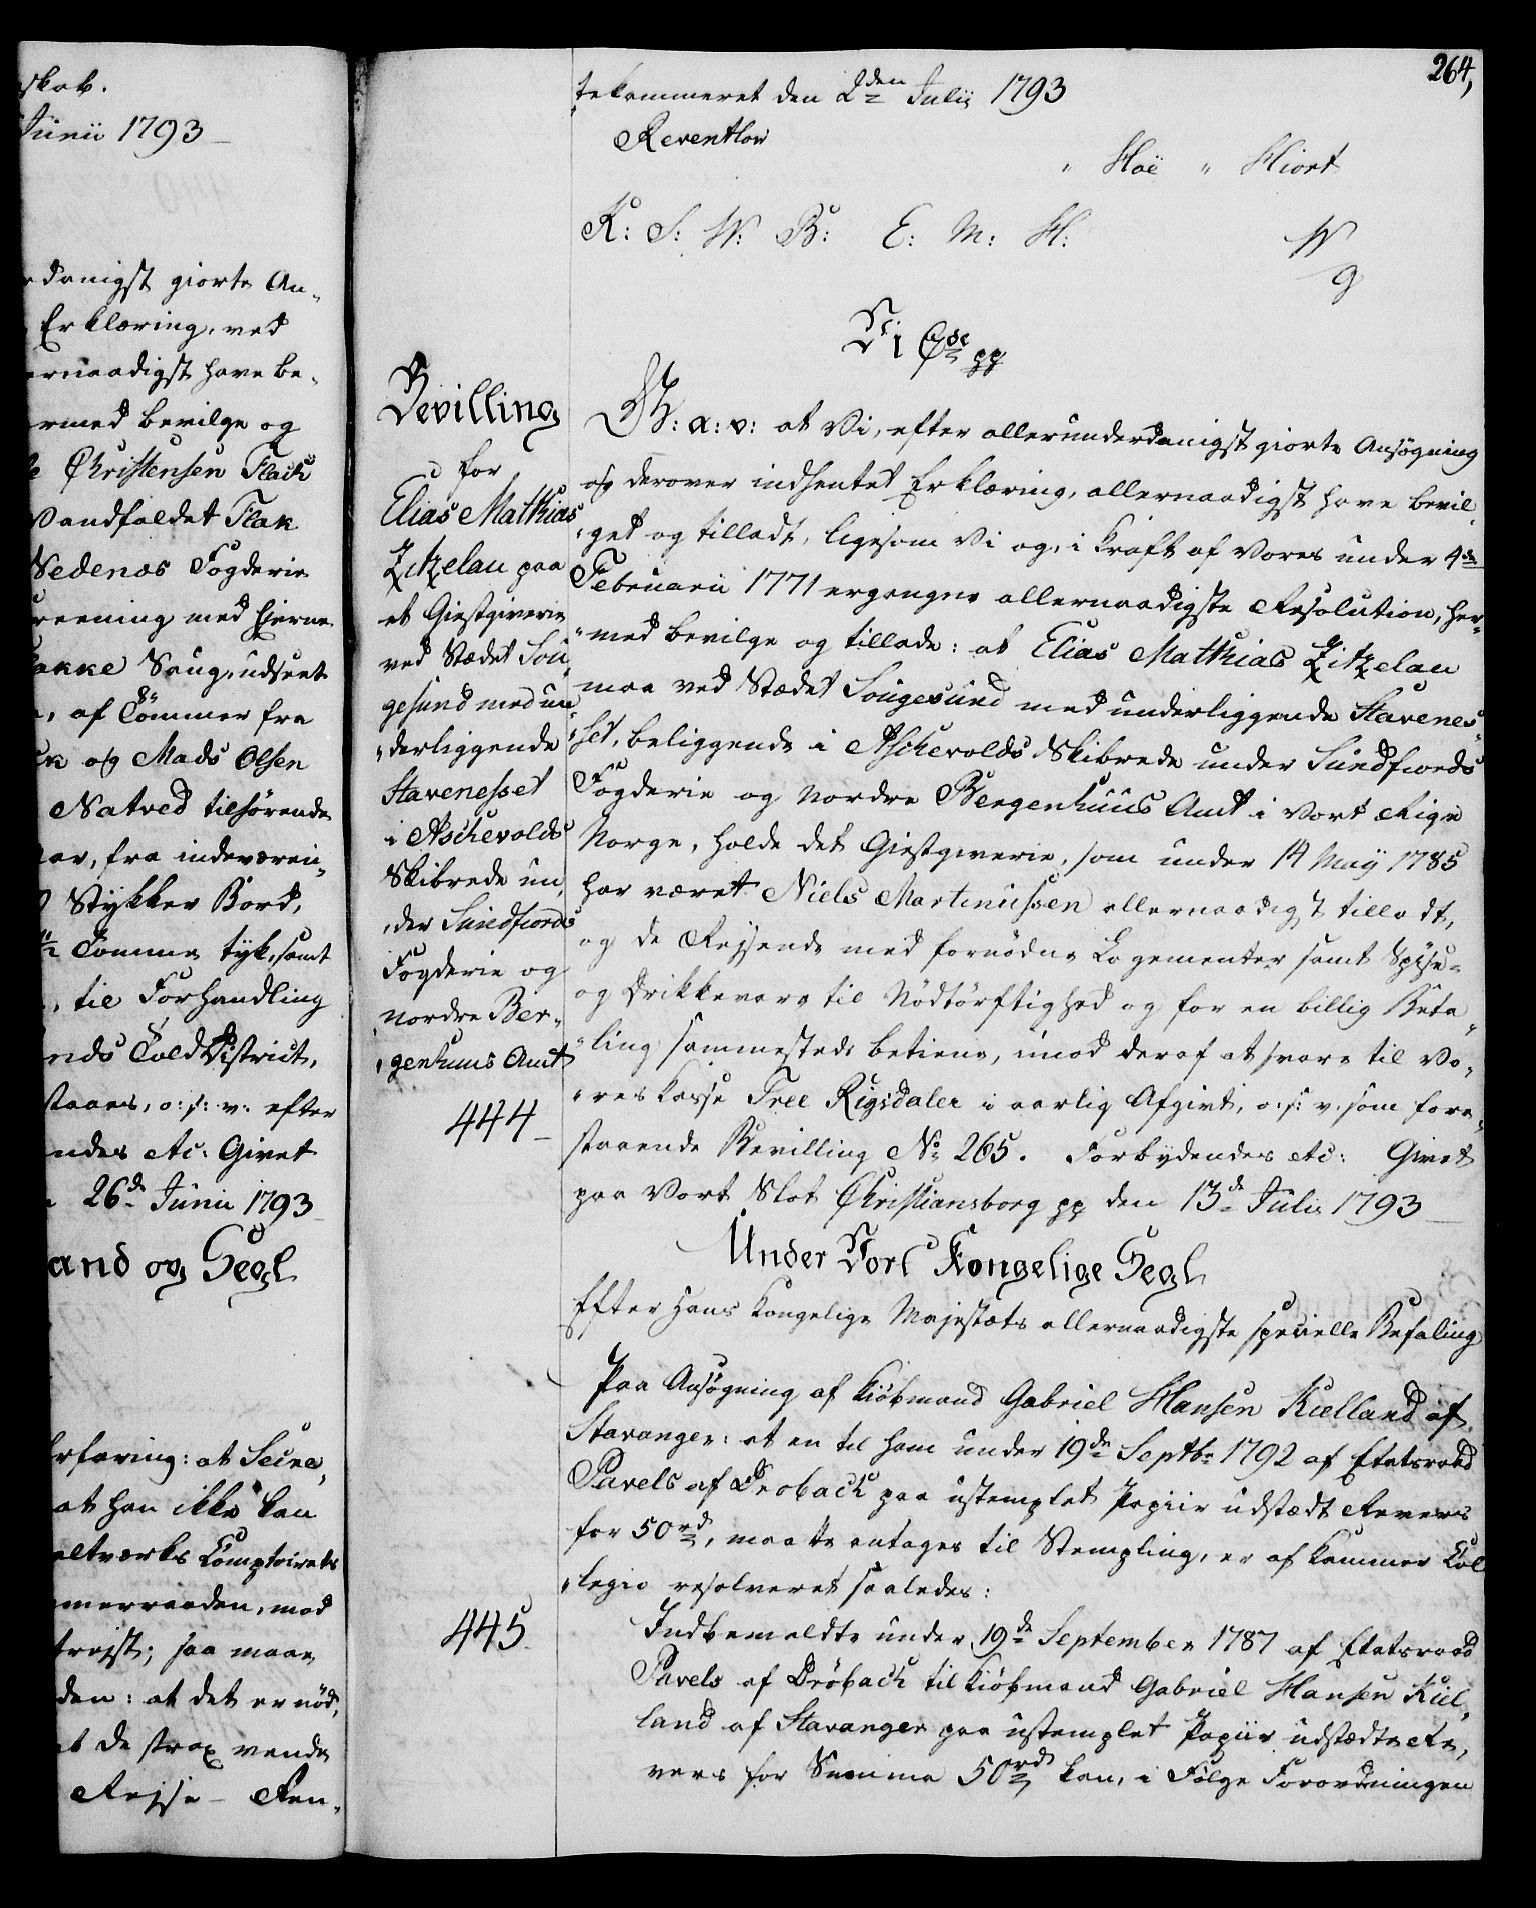 skab.
Junii 1793
danigst giorte An-
Erklæring, ved
ernaadigst have be-
ermed bevilge og
Christensen Flack
Vandfaldet Flak
Nedenæs Fogderie
reening med Hierne
akke Saug, udsuet
, af Tømmer fra
og Mads Olsen
Natved tilhørende
aar, fra indeværen-
Stykker Bord,
½ Tomme tyk, samt
, til Forhandling
nds Told District,
staaer, o: s: v: efter
ndes etc: Givet
26de Junii 1793
and og Segl
Erfaring: at Secre,
at han ikke kan
altværks Comptoirets
merraaden, mod
trejst; saa maae
den: at det er nød,
at de strax vende
Rejse - Ren-
264,
tekammeret den 2den Julii 1793
Reventlow
" Høe " Hiort
K: S: W: B: E: M: H:
W
g
Vi C7de pp
Bevilling
for
Elias Mathias
Zitzelau paa
et Giestgiverie
ved Stædet Sou-
gesund med un-
"derliggende
Stavenesset
i Aschevolds
Skibrede un,
,der Sundfiords
Fogderie og
nordre Ber-
,genhuus Amt
444
G: A: V: at Vi, efter allerunderdanigst giorte Ansøgning
og derover indhentet Erklæring, allernaadigst have bevil,
"get og tilladt, ligesom Vi og, i kraft af Vores under 4de
Februarii 1771 ergangne allernaadigste Resolution, her-
"med bevilge og tillade: at Elias Mathias Zitzelau
maa ved Stædet Sougesund med underliggende Stavenes-
"set, beliggende i Aschevolds Skibrede under Sundfiords
Fogderie og Nordre Bergenhuus Amt i Vort Rige
Norge, holde det Giestgiverie, som under 14 Maÿ 1785
har været Niels Martinussen allernaadigst tilladt,
og de Rejsende med fornødne Logementer samt Spise-
og Drikkevare til Nødtørftighed og for en billig Beta,
"ling sammesteds betiene, imod deraf at svare til Vo,
"res Kasse Tree Rigsdaler i aarlig Afgivt, o: s: v. som fore,
staaende Bevilling No 265. Forbydendes etc: Givet
paa Vort Slot Christiansborg pp den 13de Julii 1793
Under Vort Kongelige Segl
Efter Hans Kongelige Majestæts allernaadigste specielle Befaling
Paa Ansøgning af Kiøbmand Gabriel Hansen Kielland af
Stavanger: at en til ham under 19de Septbr 1792 af Etatsraad
Pavels af Drøbach paa ustemplet Papiir udstædt Revers
for 50rd, maatte antages til Stempling, er af Kammer Col
"legio resolveret saaledes:
445.
Indbemeldte under 19de September 1787 af Etatsraad
Pavels af Drøbach til Kiøbmand Gabriel Hansen Kiel,
land af Stavanger paa ustemplet Papiir udstædte Re,
vers for Summa 50rd kan, i Følge Forordningen